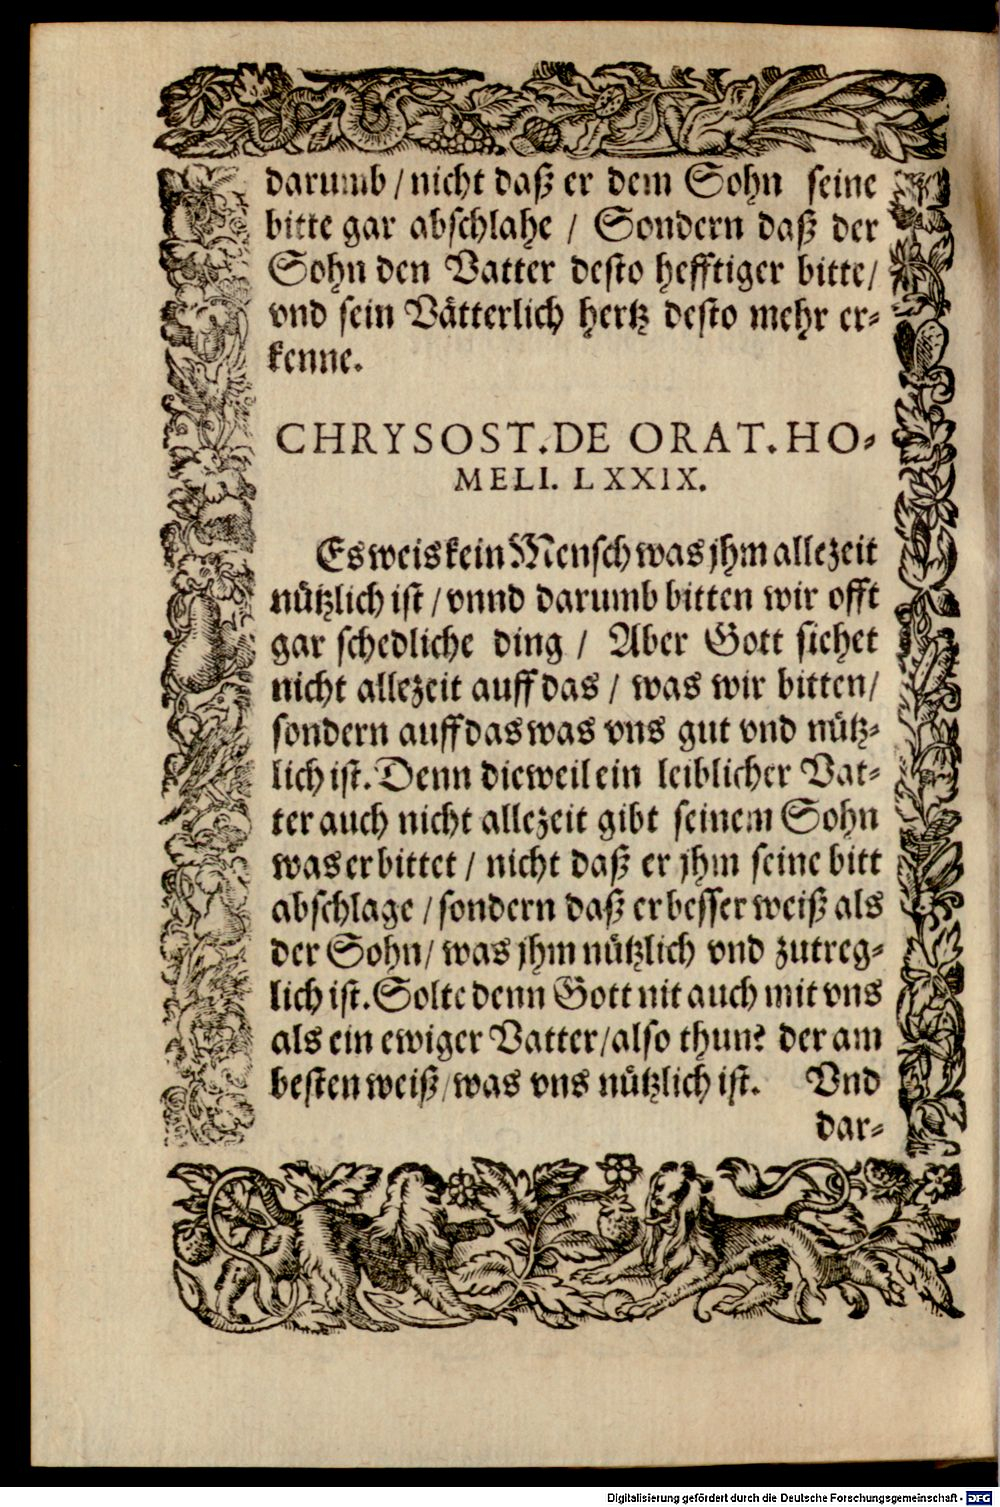 darumb / nicht daß er dem Sohn seine
bitte gar abschlahe / Sondern daß der
Sohn den Vatter desto hefftiger bitte/
vnd sein Vätterlich hertz desto mehr er-
kenne.
CHRYSOST. DE ORAT. HO-
MELI. LXXIX.
Es weis kein Mensch was jhm allezeit
nützlich ist / vnnd darumb bitten wir offt
gar schedliche ding / Aber Gott siehet
nicht allezeit auff das / was wir bitten/
sondern auff das was vns gut vnd nütz-
lich ist. Denn dieweil ein leiblicher Vat-
ter auch nicht allezeit gibt seinem Sohn
was er bittet / nicht daß er jhm seine bitt
abschlage / sondern daß er besser weiß als
der Sohn/ was jhm nützlich vnd zutreg-
lich ist. Solte denn Gott nit auch mit vns
als ein ewiger Vatter/also thun? der am
besten weiß/was vns nützlich ist. Vnd
dar-
Digitalisierung gefördert durch die Deutsche Forschungsgemeinschaft - DFG